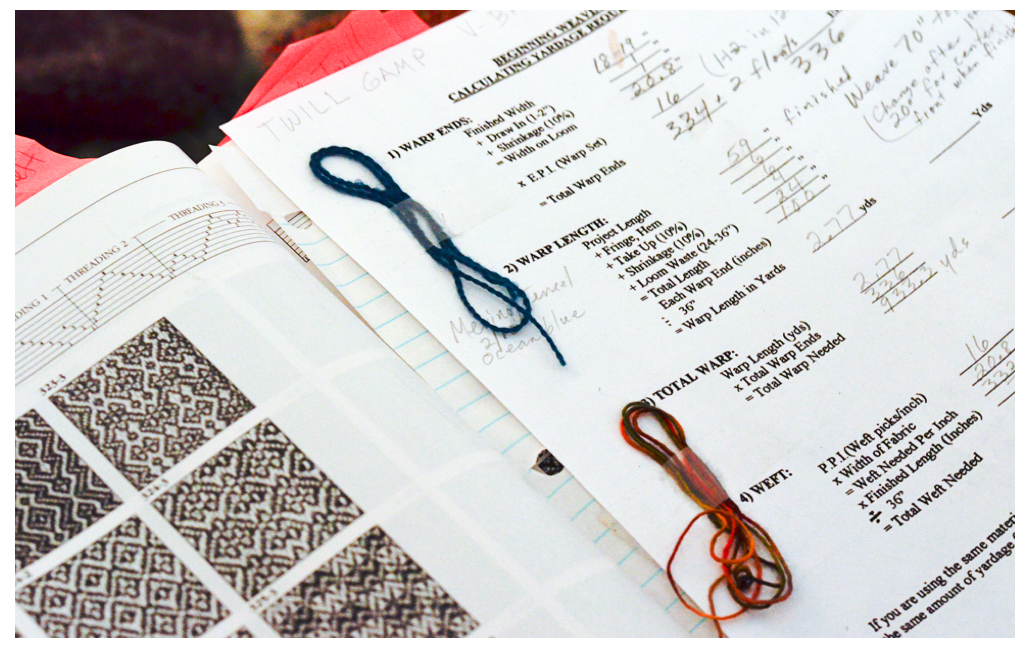 TWILL GAMP
BEGINNING WEAVE
CALCULATING YARDAGE REQU
1) WARP ENDS:
Finished Width
+ Draw In (1-2")
+ Shrinkage (10%)
= Width on Loom
x E.P.I. (Warp Set)
= Total Warp Ends
20.8"
16
334 + 2 floats
336
finished
Weave 70"
Change after
20" for center
front when finish
2) WARP LENGTH:
Project Length
+ Fringe, Hem
+ Take Up (10%)
+ Shrinkage (10%)
+ Loom Waste (24-36")
= Total Length
Each Warp End (inches)
÷ 36"
= Warp Length in Yards
Yds
2.77 yds
Ocean blue
3) TOTAL WARP:
Warp Length (yds)
x Total Warp Ends
= Total Warp Needed
2.77
336
933.3 yds
4) WEFT:
P.P.I.(Weft picks/inch)
x Width of Fabric
= Weft Needed Per Inch
x Finished Length (Inches)
÷ 36"
= Total Weft Needed
16
20.8
If you are using the same materi
the same amount of yardage
DING 1
THREADING 2
THREADING 3
123-1
123-2